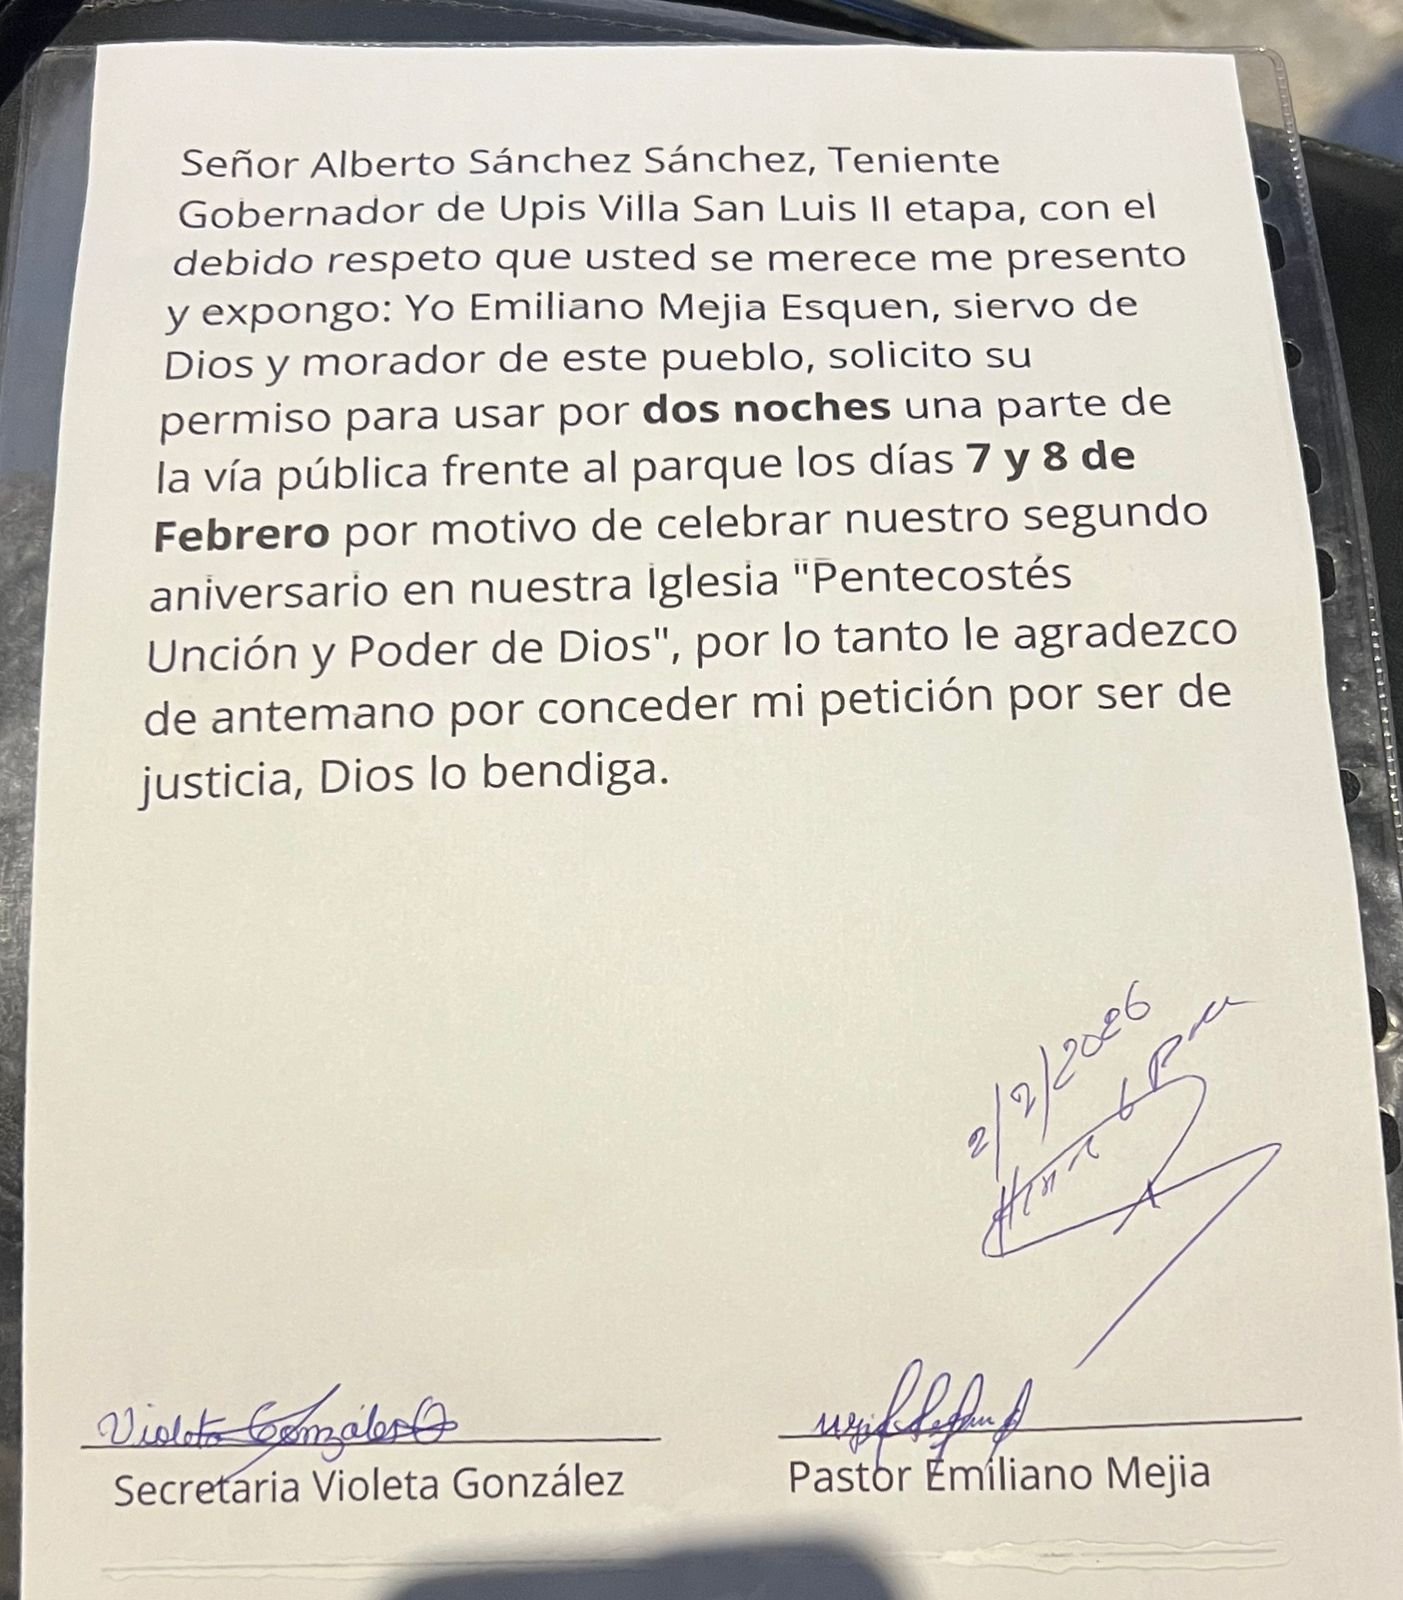 Señor Alberto Sánchez Sánchez, Teniente
Gobernador de Upis Villa San Luis II etapa, con el
debido respeto que usted se merece me presento
y expongo: Yo Emiliano Mejia Esquen, siervo de
Dios y morador de este pueblo, solicito su
permiso para usar por dos noches una parte de
la vía pública frente al parque los días 7 y 8 de
Febrero por motivo de celebrar nuestro segundo
aniversario en nuestra Iglesia "Pentecostés
Unción y Poder de Dios", por lo tanto le agradezco
de antemano por conceder mi petición por ser de
justicia, Dios lo bendiga.
2/2/2026
Violeta González
Secretaria Violeta González
Pastor Emiliano Mejia